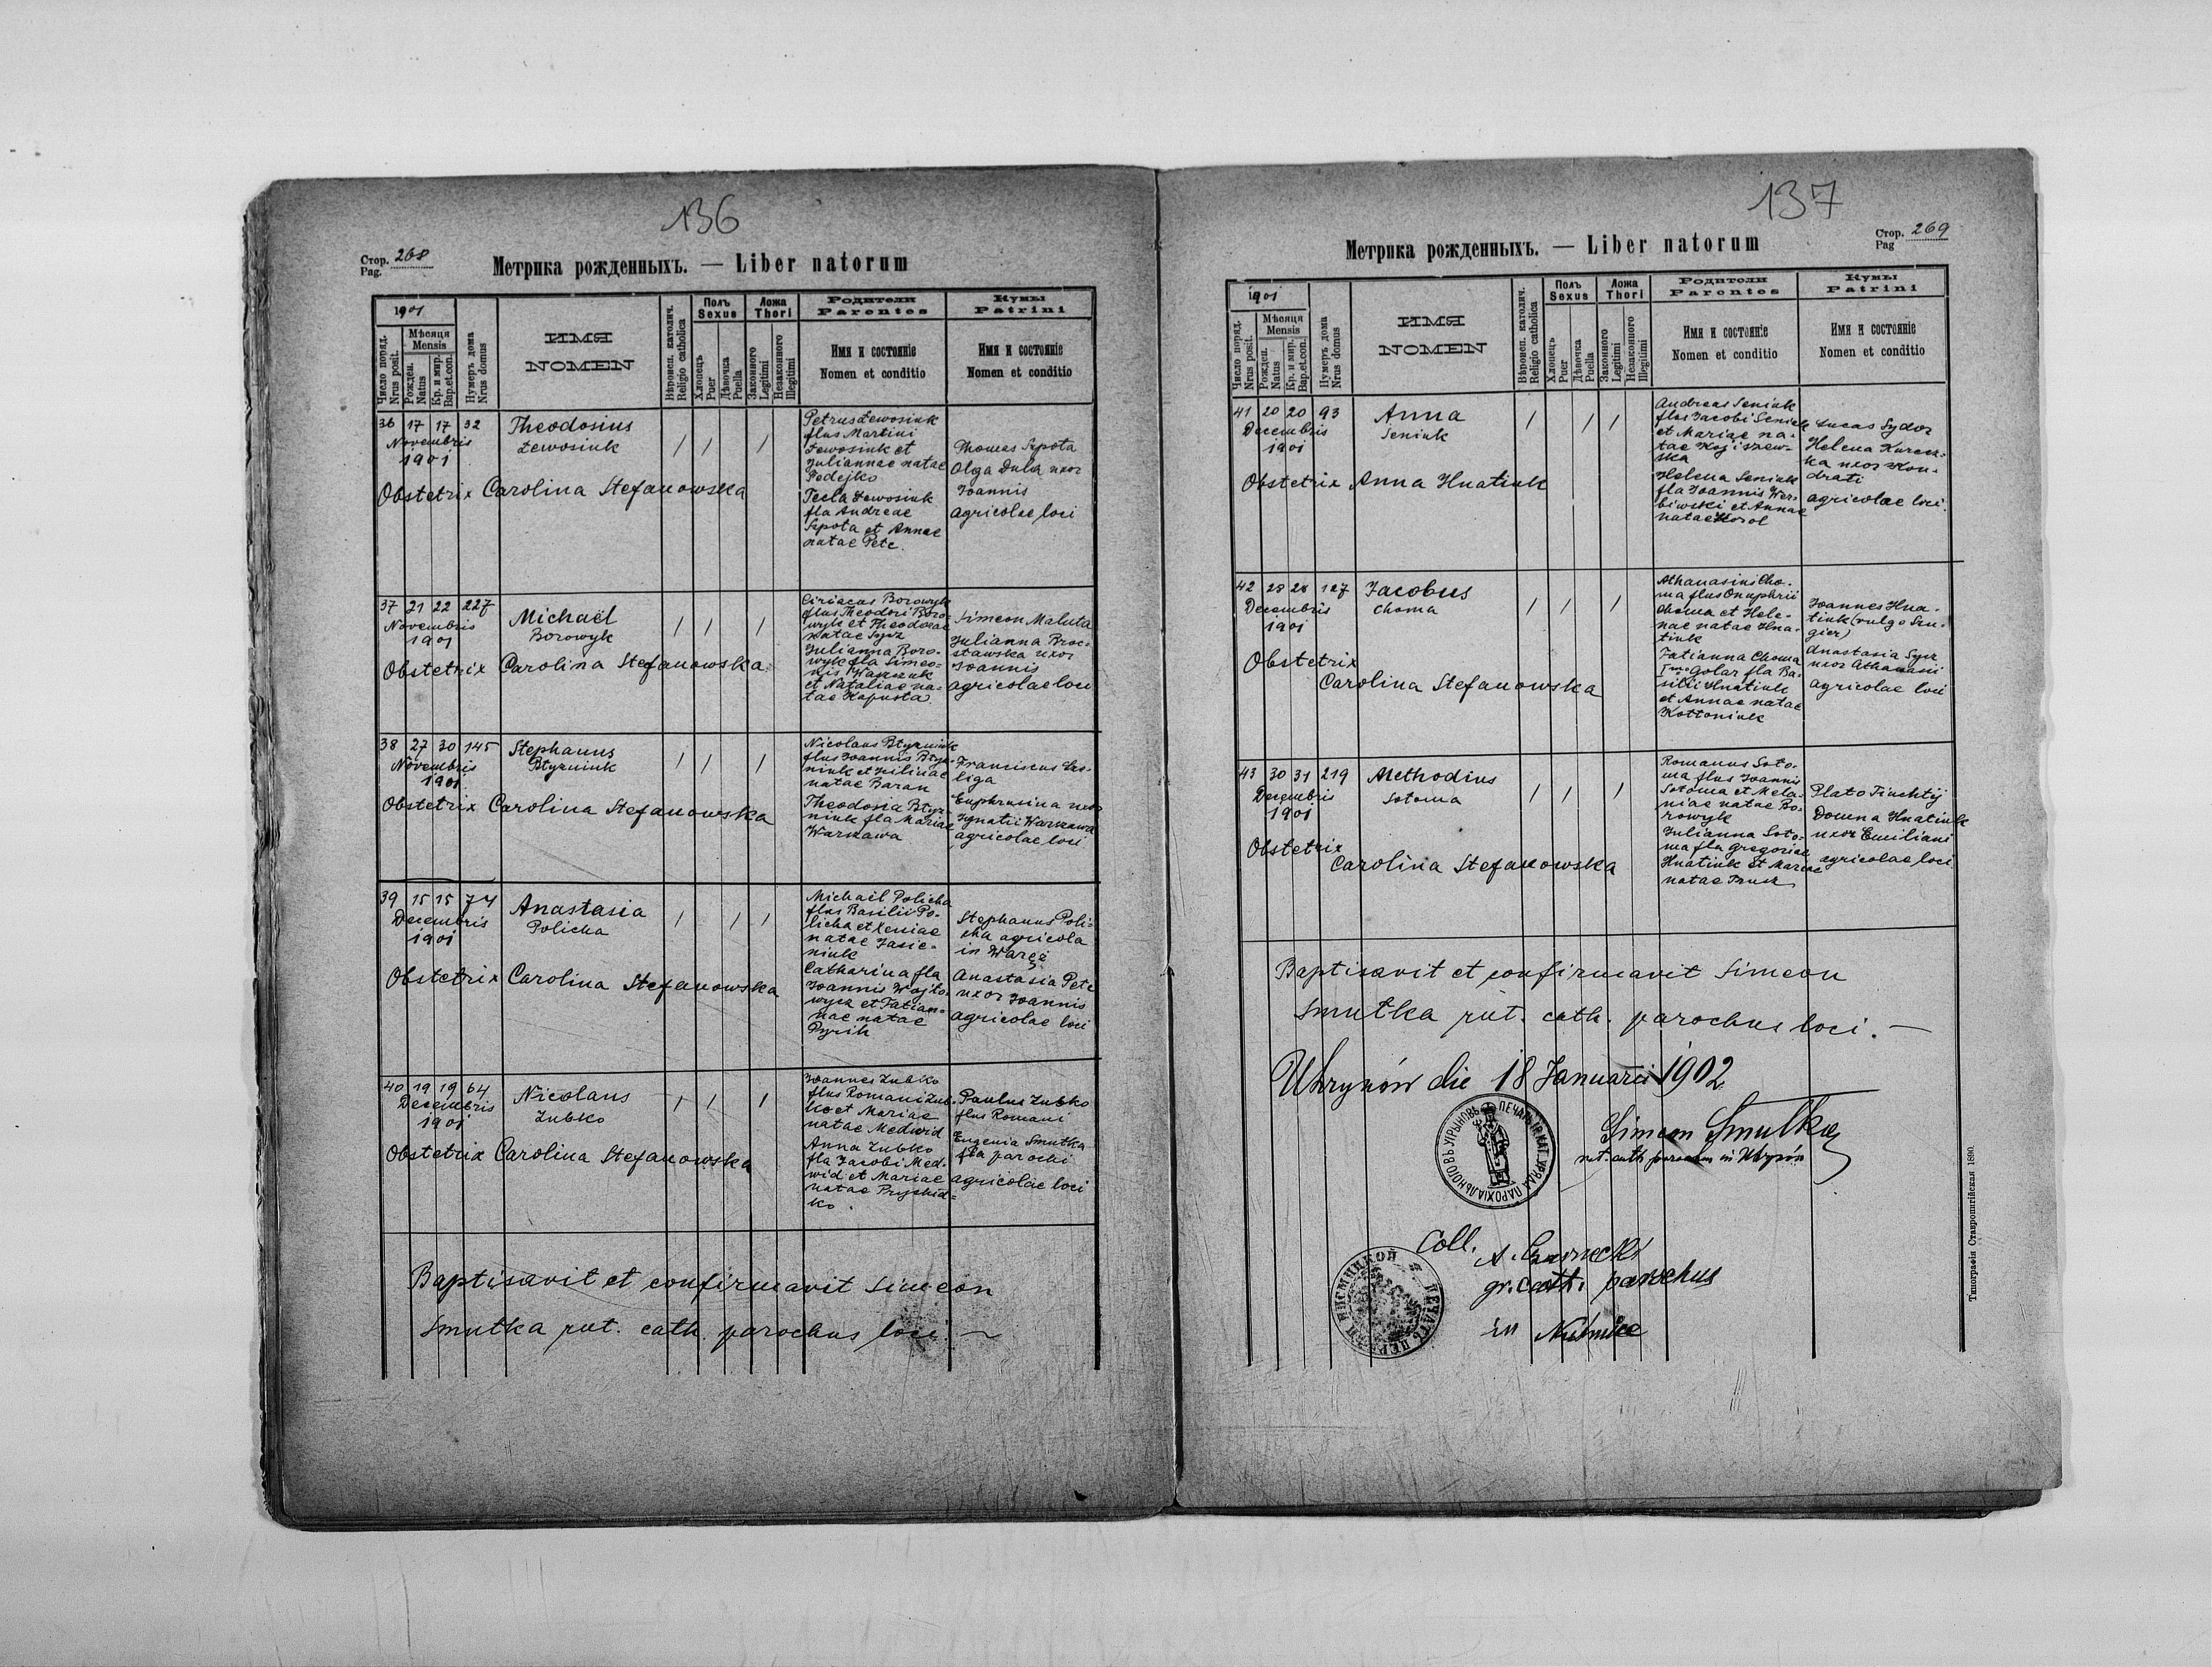 136
Стор. 268
Pag.
Метрика рожденныхъ. — Liber natorum
1901
Число поряд.
Nrus posit.
Мѣсяця
Mensis
Рожден.
Natus
Кр. и мир.
Bap.et.con.
Нумеръ дома
Nrus domus
ИМЯ
NOMEN
Вѣроисп. католич.
Religio catholica
Полъ
Sexus
Хлопецъ
Puer
Дѣвочка
Puella
Ложа
Thori
Законного
Legitimi
Незаконного
Illegitimi
Родители
Parentes
Имя и состояніе
Nomen et conditio
Кумы
Patrini
Имя и состояніе
Nomen et conditio
36 17 17 32
Novembris
1901
Theodosius
Lewosiuk
Obstetrix Carolina Stefanowska
Petrus Lewosiuk
flus Martini
Lewosiuk et
Juliannae natae
Pedejko
Tecla Lewosiuk
fla Andreae
Szpota et Annae
natae Petc.
Thomas Szpota
Olga Dula uxor
Joannis
agricolae loci
37 21 22 227
Novembris
1901
Michaël
Borowyk
Obstetrix Carolina Stefanowska
Ciriacus Borowyk
flus Theodori Boro-
wyk et Theodorae
natae Sysz
Julianna Boro-
wyk fla Simeo-
nis
et Nataliae na-
tae Kapusta
Simeon Maluta
Julianna Broc-
stawska uxor
Joannis
agricolae loci
38 27 30 145
Novembris
1901
Stephanus
Btyzniuk
Obstetrix Carolina Stefanowska
Nicolaus Btyzniuk
flus Joannis Btyz-
niuk et Juliniae
natae Baran
Theodosia Btyz-
niuk fla Mariae
Warszawa
Franciscus Les-
liga
Euphrusina uxor
Ignatii Warszawa
agricolae loci
39 15 15 74
Decembris
1901
Anastasia
Policha
Obstetrix Carolina Stefanowska
Michaël Policha
flus Basilii Po-
licha et Xeniae
natae Jasie-
niuk
Catharina fla
Joannis Wojto-
wycz et Tatian-
nae natae
Pyrih
Stephanus Poli-
cha agricola
in Waręż
Anastasia Petc
uxor Joannis
agricolae loci
40 19 19 64
Decembris
1901
Nicolaus
Zubko
Obstetrix Carolina Stefanowska
Joannes Zubko
flus Romani Zub-
ko et Mariae
natae Medwid
Anna Zubko
fla Jacobi Med-
wid et Mariae
natae Prychid-
ko.
Paulus Zubko
flus Romani
Eugenia Smutka
fla parochi
agricolae loci
Baptisavit et confirmavit Simeon
Smutka rut. cath. parochus loci. ~
137
Стор. 269
Pag
Метрика рожденныхъ. — Liber natorum
1901
Число поряд.
Nrus posit.
Мѣсяця
Mensis
Рожден.
Natus
Кр. и мир.
Bap.et.con.
Нумеръ дома
Nrus domus
ИМЯ
NOMEN
Вѣроисп. католич.
Religio catholica
Полъ
Sexus
Хлопецъ
Puer
Дѣвочка
Puella
Ложа
Thori
Законного
Legitimi
Незаконного
Illegitimi
Родители
Parentes
Имя и состояніе
Nomen et conditio
Кумы
Patrini
Имя и состояніе
Nomen et conditio
41 20 20 93
Decembris
1901
Anna
Seniuk
Obstetrix Anna Hnatiuk
Andreas Seniuk
flus Jacobi Seniuk
et Mariae na-
tae Kojiszew-
ska
Helena Seniuk
fla Joannis Wer-
biwski et Annae
natae Korol
Lucas Sydor
Helena Kurcz-
ka uxor Kon-
drati
agricolae loci.
42 28 28 127
Decembris
1901
Jacobus
Choma
Obstetrix
Carolina Stefanowska
Athanasius Cho-
ma flus Onuphrii
Choma et Hele-
nae natae Hna-
tiuk
Tatianna Choma
Golar fla Ba-
silii Hnatiuk
et Annae natae
Kottoniuk
Joannes Hna-
tiuk (vulgo Szu-
gier)
Anastasia Sysz
uxor Athanasii
agricolae loci
43 30 31 219
Decembris
1901
Methodius
Sotoma
Obstetrix
Carolina Stefanowska
Romanus Soto-
ma flus Joannis
Sotoma et Mela-
niae natae Bo-
rowyk
Julianna Soto-
ma fla Gregorii
Hnatiuk et Mariae
natae
Plato Tiuchtij
Domna Hnatiuk
uxor Emiliani
agricolae loci
Baptisavit et confirmavit Simeon
Smutka rut. cath. parochus loci. —
Uhrynów die 18 Januarii 1902
Simeon Smutka
rut. cath. parochus in Uhrynów
ПЕЧАТЬ ГР. КАТ. УРЯДА ПАРОХІАЛЬНОГО ВЪ УГРЫНОВѢ
Coll.
gr. cath. parochus
in
Типографія Ставропигійская 1890.